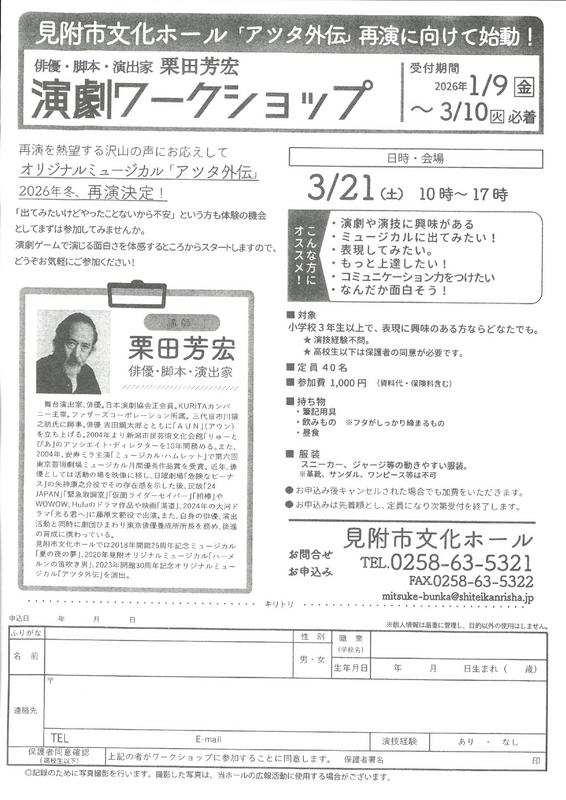 見附市文化ホール「アツタ外伝」再演に向けて始動！
俳優・脚本・演出家 栗田芳宏
演劇ワークショップ
受付期間
2026年1/9金
～3/10火必着
再演を熱望する沢山の声にお応えして
オリジナルミュージカル「アツタ外伝」
2026年冬、再演決定！
「出てみたいけどやったことないから不安」という方も体験の機会
としてまずは参加してみませんか。
演劇ゲームで演じる面白さを体感するところからスタートしますので、
どうぞお気軽にご参加ください！
日時・会場
3/21(土) 10時～17時
こんな方に
オススメ！
・演劇や演技に興味がある
・ミュージカルに出てみたい！
・表現してみたい。
・もっと上達したい！
・コミュニケーション力をつけたい
・なんだか面白そう！
講師
栗田芳宏
俳優・脚本・演出家
舞台演出家、俳優。日本演劇協会正会員。KURITAカンパ
ニー主宰。ファザーズコーポレーション所属。三代目市川猿
之助氏に師事。俳優 吉田鋼太郎とともに「AUN」(アウン)
を立ち上げる。2004年より新潟市民芸術文化会館「りゅーと
ぴあ」のアソシエイト・ディレクターを10年間務める。また、
2004年、安寿ミラ主演「ミュージカル・ハムレット」で第六回
東京芸術劇場ミュージカル月間優秀作品賞を受賞。近年、俳
優としては活動の場を映像に移し、日曜劇場「危険なビーナ
ス」の矢神康之介役でその存在感を示した後、民放「24
JAPAN」「緊急取調室」「仮面ライダーセイバー」「相棒」や
WOWOW、Huluのドラマ作品や映画「湯道」、2024年の大河ド
ラマ「光る君へ」に藤原文範役で出演。また、自身の俳優、演出
活動と同時に劇団ひまわり東京俳優養成所所長を務め、後進
の育成に携わっている。
見附市文化ホールでは2018年開館25周年記念ミュージカル
「夏の夜の夢」、2020年見附オリジナルミュージカル「ハーメ
ルンの笛吹き男」、2023年開館30周年記念オリジナルミュー
ジカル「アツタ外伝」を演出。
■対象
小学校3年生以上で、表現に興味のある方ならどなたでも。
★演技経験不問。
★高校生以下は保護者の同意が必要です。
■定員 40名
■参加費 1,000円 （資料代・保険料含む）
■持ち物
・筆記用具
・飲みもの ※フタがしっかり締まるもの
・昼食
■服装
スニーカー、ジャージ等の動きやすい服装。
※革靴、サンダル、ワンピース等は不可
●お申込み後キャンセルされた場合でも加費をいただきます。
●お申込みは先着順とし、定員になり次第受付を終了します。
お問合せ
お申込み
見附市文化ホール
TEL.0258-63-5321
FAX.0258-63-5322
mitsuke-bunka@shiteikanrisha.jp
キリトリ
申込日 年 月 日
※個人情報は厳重に管理し、目的以外の使用はしません。
ふりがな
名前
性別
男・女
職業
(学校名)
生年月日
年 月 日生まれ（ 歳）
連絡先
〒
TEL
E-mail
演技経験
あり ・ なし
保護者同意確認
(高校生以下)
上記の者がワークショップに参加することに同意します。 保護者署名 印
◎記録のために写真撮影を行います。撮影した写真は、当ホールの広報活動に使用する場合がございます。